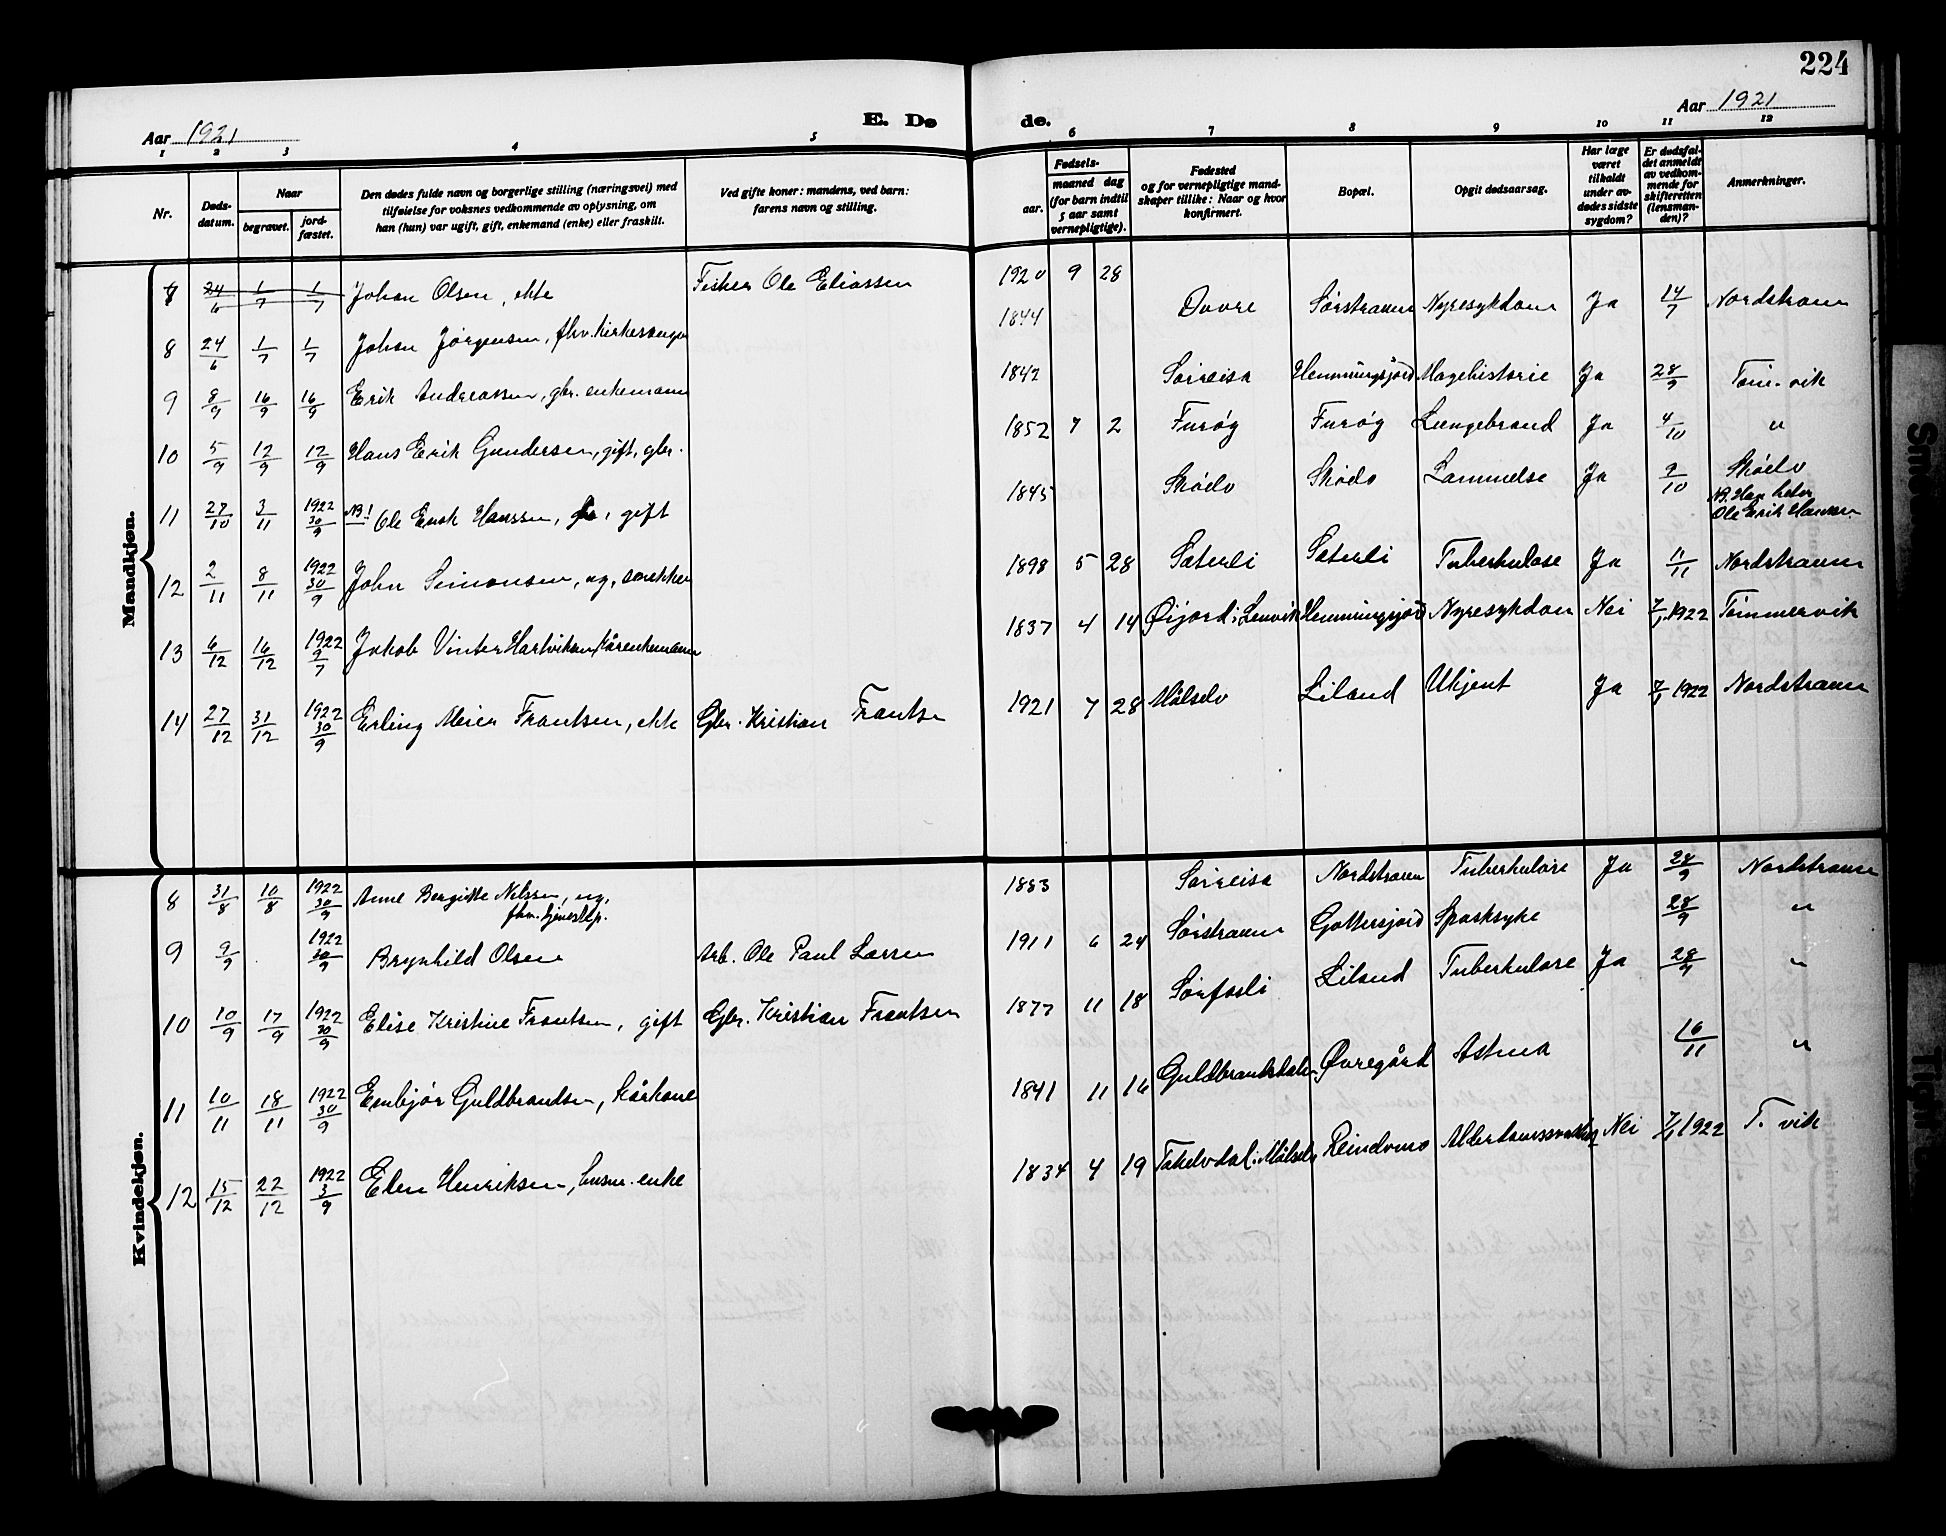 224
Aar 1921
E. Dø
de.
Aar 1921
1 2 3 4 5 6 7 8 9 10 11 12
Nr.
Døds-
datum.
Naar
begravet.
jord-
fæstet.
Den dødes fulde navn og borgerlige stilling (næringsvei) med
tilføielse for voksnes vedkommende av oplysning, om
han (hun) var ugift, gift, enkemand (enke) eller fraskilt.
Ved gifte koner: mandens, ved barn:
farens navn og stilling.
Fødsels-
aar.
maaned dag
(for barn indtil
5 aar samt
vernepligtige).
Fødested
og for vernepligtige mand-
skaper tillike: Naar og hvor
konfirmert.
Bopæl.
Opgit dødsaarsag.
Har læge
været
tilkaldt
under av-
dødes sidste
sygdom?
Er dødsfal-
det anmeldt
av vedkom-
mende for
skifteretten
(lensman-
den)?
Anmerkninger.
Mandkjøn.
24/6 1/7 1/7 Johan Olsen, ekte Fisker Ole Eliassen 1920 9 28
8 24/6 1/7 1/7 Johan Jørgensen, fhv. kirkesanger 1844 Dovre Sørstraumen Nyresykdom Ja 14/7 Nordstraum
9 8/9 16/9 16/9 Erik Andreassen, gbr. enkemann 1842 Sørreisa Hemmingsjord Magehistorie Ja 28/9 Tøm. vik
10 5/9 12/9 12/9 Hans Erik Gundersen, gift, gbr. 1852 7 2 Furøy Furøy Lungebrand Ja 4/10 "
11 27/10 3/11 1922 30/9 NB! Ole Enok Hanssen, gift 1845 Skøelv Skøelv Lammelse Ja 9/10 Skøelv
NB. Han heter
Ole Erik Hansen
12 2/11 8/11 1922 30/9 John Simonsen, ug, snekker 1898 5 28 Sæterli Sæterli Tuberkulose Ja 11/11 Nordstraum
13 6/12 16/12 1922 9/7 Jakob Vinter Hartviksen, kårenkemann 1837 4 14 Øijord i Lenvik Hemmingsjord Nyresykdom Nei 7/1 1922 Tømmervik
14 27/12 31/12 1922 30/9 Erling Meier Frantsen, ekte Gbr. Kristian Frantse 1921 7 28 Målselv Liland Ukjent Ja 7/1 1922 Nordstraum
Kvindekjøn.
8 31/8 10/8 1922 30/9 Anne Bergitte Nilssen, ug, 1853 Sørreisa Nordstraumen Tuberkulose Ja 28/9 Nordstraum
fhv. tjenestep.
9 9/9 1922 30/9 Brynhild Olsen Arb. Ole Paul Larsen 1911 6 24 Sørstraumen Gottersjord Spansksyke 28/9 "
10 10/9 17/9 1922 30/9 Elise Kristine Frantsen, gift Gbr. Kristian Frantsen 1877 11 18 Sørfosli Liland Tuberkulose Ja 28/9 "
11 10/11 18/11 1922 30/9 Embjør Guldbrandsen, kårkone 1841 11 16 Guldbrandsdalen Øvregård Astma 16/11 "
12 15/12 22/12 1922 3/9 Elen Henriksen, husm. enke 1834 4 19 Takelvdal i Målselv Reindvmo Alderdomssvakhet Nei 7/1 1922 T. vik